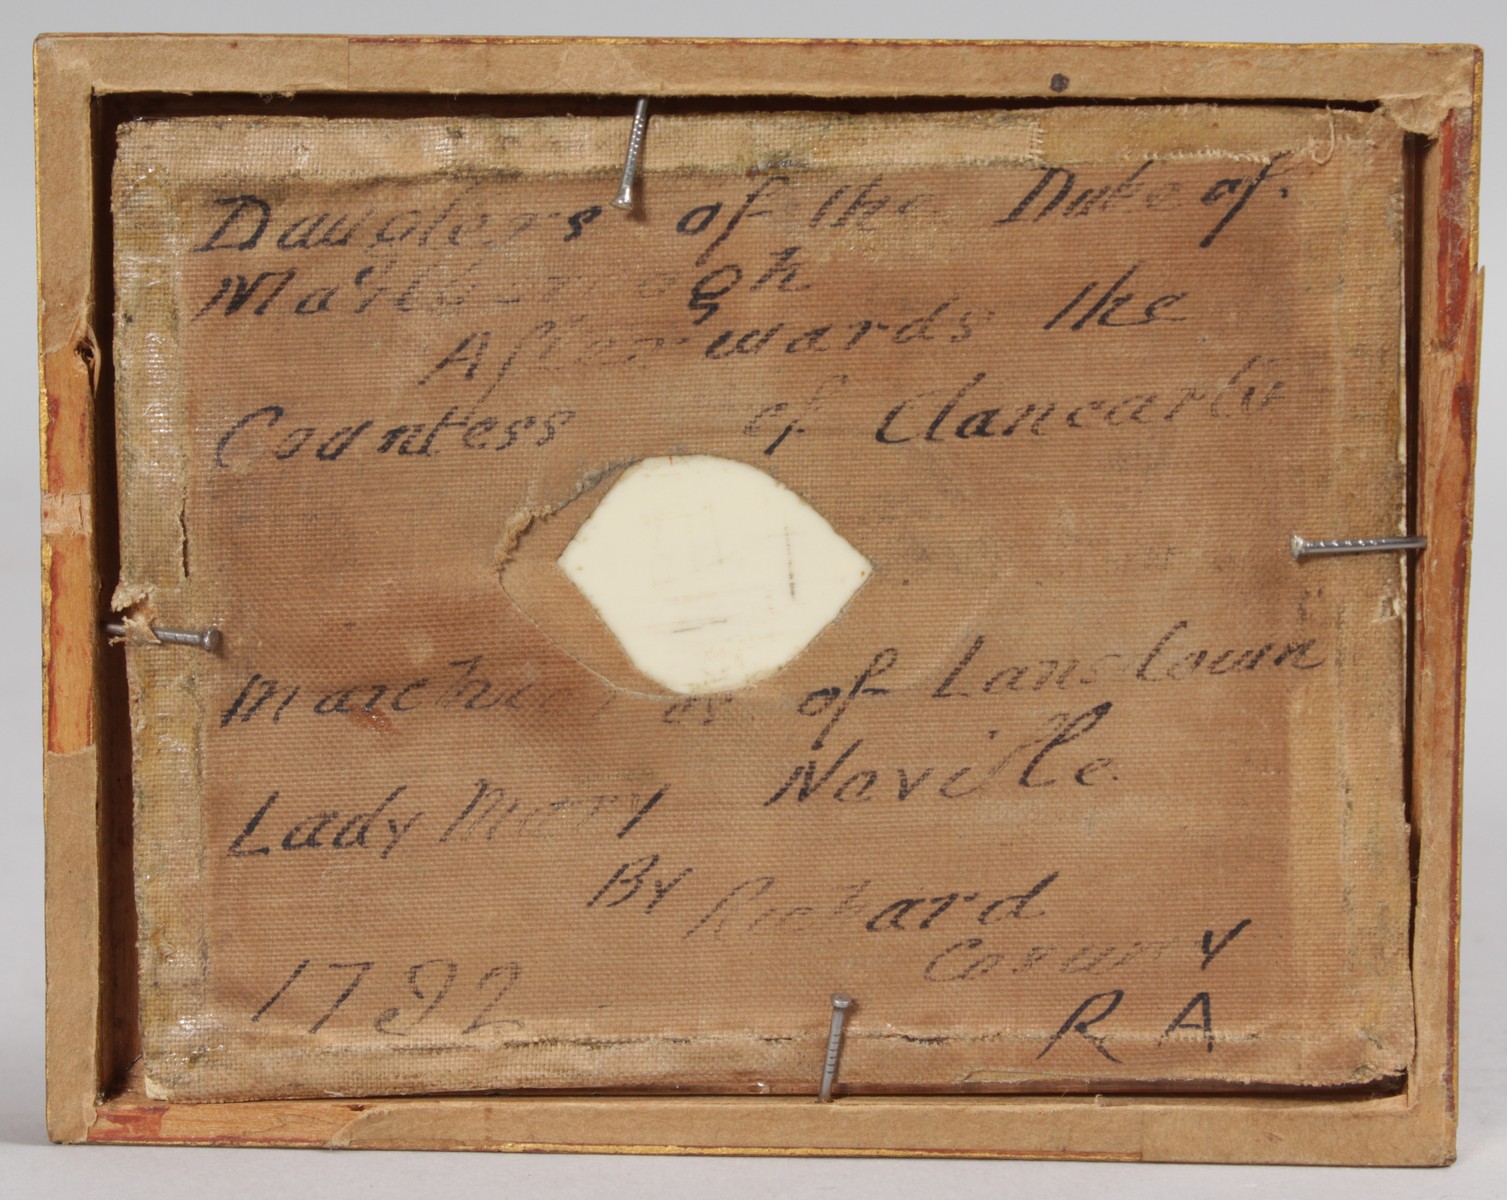 Daughters of the Duke of
Marlborough
Afterwards the
Countess of Clancarty
Marchioness of Lanstown
Lady Mary Neville
By Richard
Cosway
1792 R A